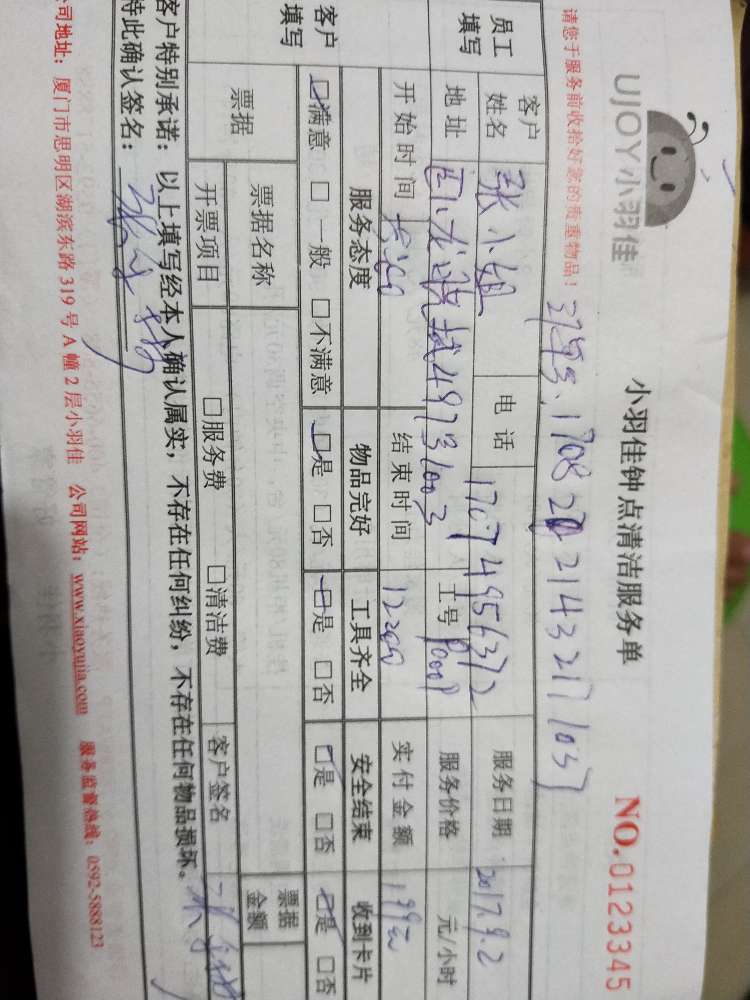 UJOY小羽佳
小羽佳钟点清洁服务单
NO.0123345
请您于服务前收拾好您的贵重物品！
1708 2143217 1037
员工填写
客户姓名 张小姐 电话 17074956372 服务日期 2017.9.2
地址 4973/1003 工号 服务价格 元/小时
开始时间 结束时间 实付金额
客户填写
服务态度 物品完好 工具齐全 安全结束 收到卡片
□满意 □一般 □不满意 □是 □否 □是 □否 □是 □否 □是 □否
票据
票据名称 票据金额
开票项目 □服务费 □清洁费 客户签名
客户特别承诺：以上填写经本人确认属实，不存在任何纠纷，不存在任何物品损坏。
特此确认签名：
公司地址：厦门市思明区湖滨东路 319 号 A 幢 2 层小羽佳 公司网站：www.xiaoyujia.com 服务监督热线：0592-5888123